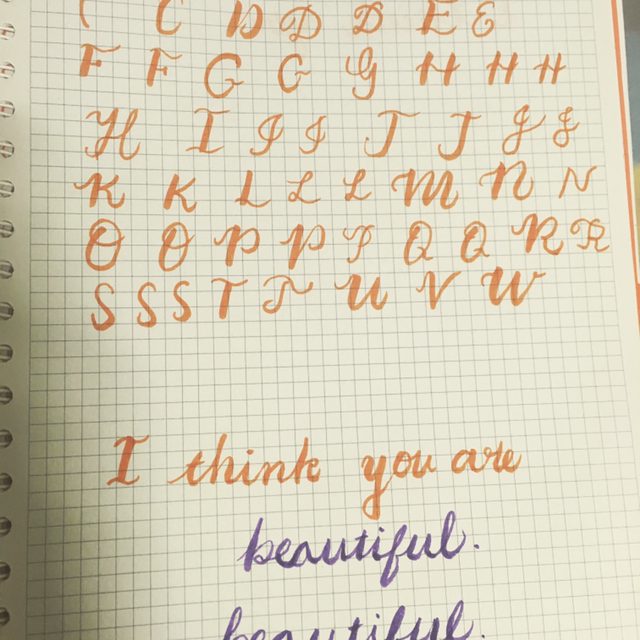 C C D D D E E
F F G G G H H H
H I I I J J J J
K K L L L M N N
O O P P P Q Q R R
S S S T T U V W
I think you are
beautiful.
beautiful